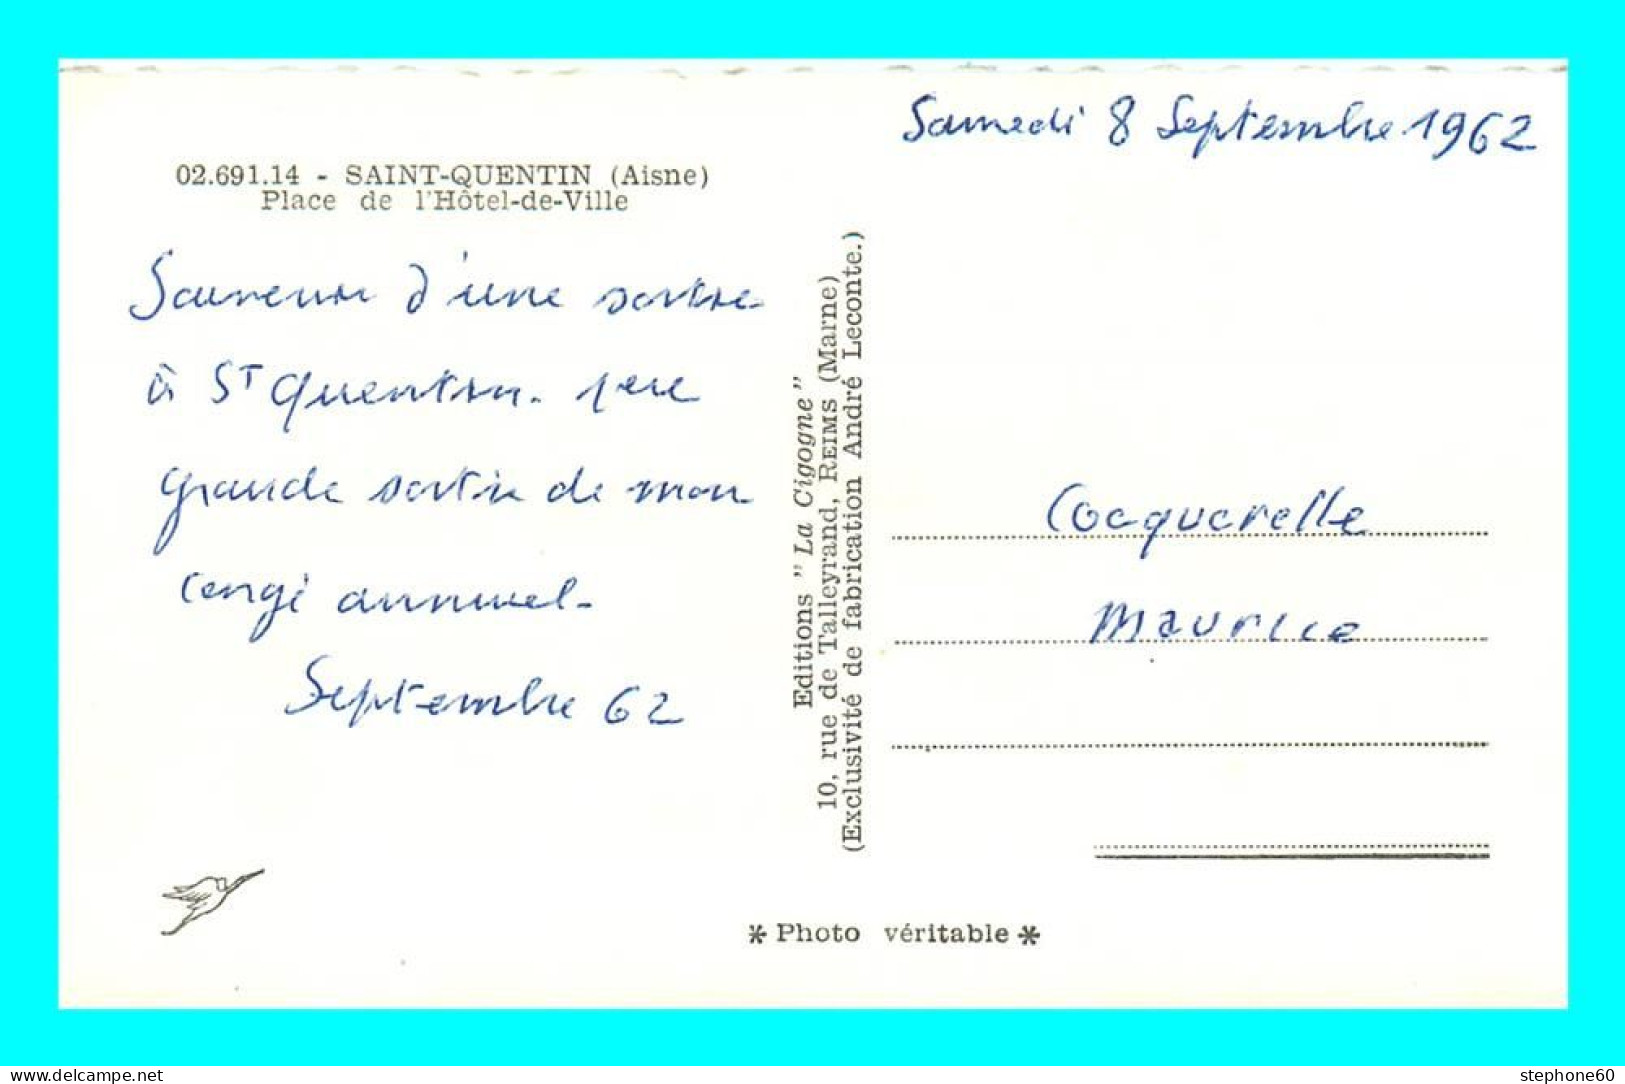 Samedi 8 Septembre 1962
02.691.14 - SAINT-QUENTIN (Aisne)
Place de l'Hôtel-de-Ville
Souvenir d'une sortie
à St Quentin. 1ere
grande sortie de mon
congé annuel.
Septembre 62
Editions "La Cigogne"
10, rue de Talleyrand, REIMS (Marne)
(Exclusivité de fabrication André Leconte.)
Cocquerelle
Maurice
* Photo véritable *
delcampe.net
stephone60